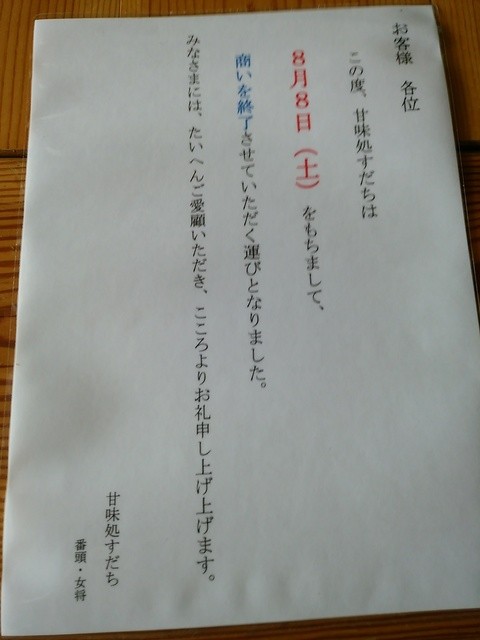 お客様　各位
この度、甘味処すだちは
８月８日（土）をもちまして、
商いを終了させていただく運びとなりました。
みなさまには、たいへんご愛顧いただき、こころよりお礼申し上げ上げます。
甘味処すだち
番頭・女将